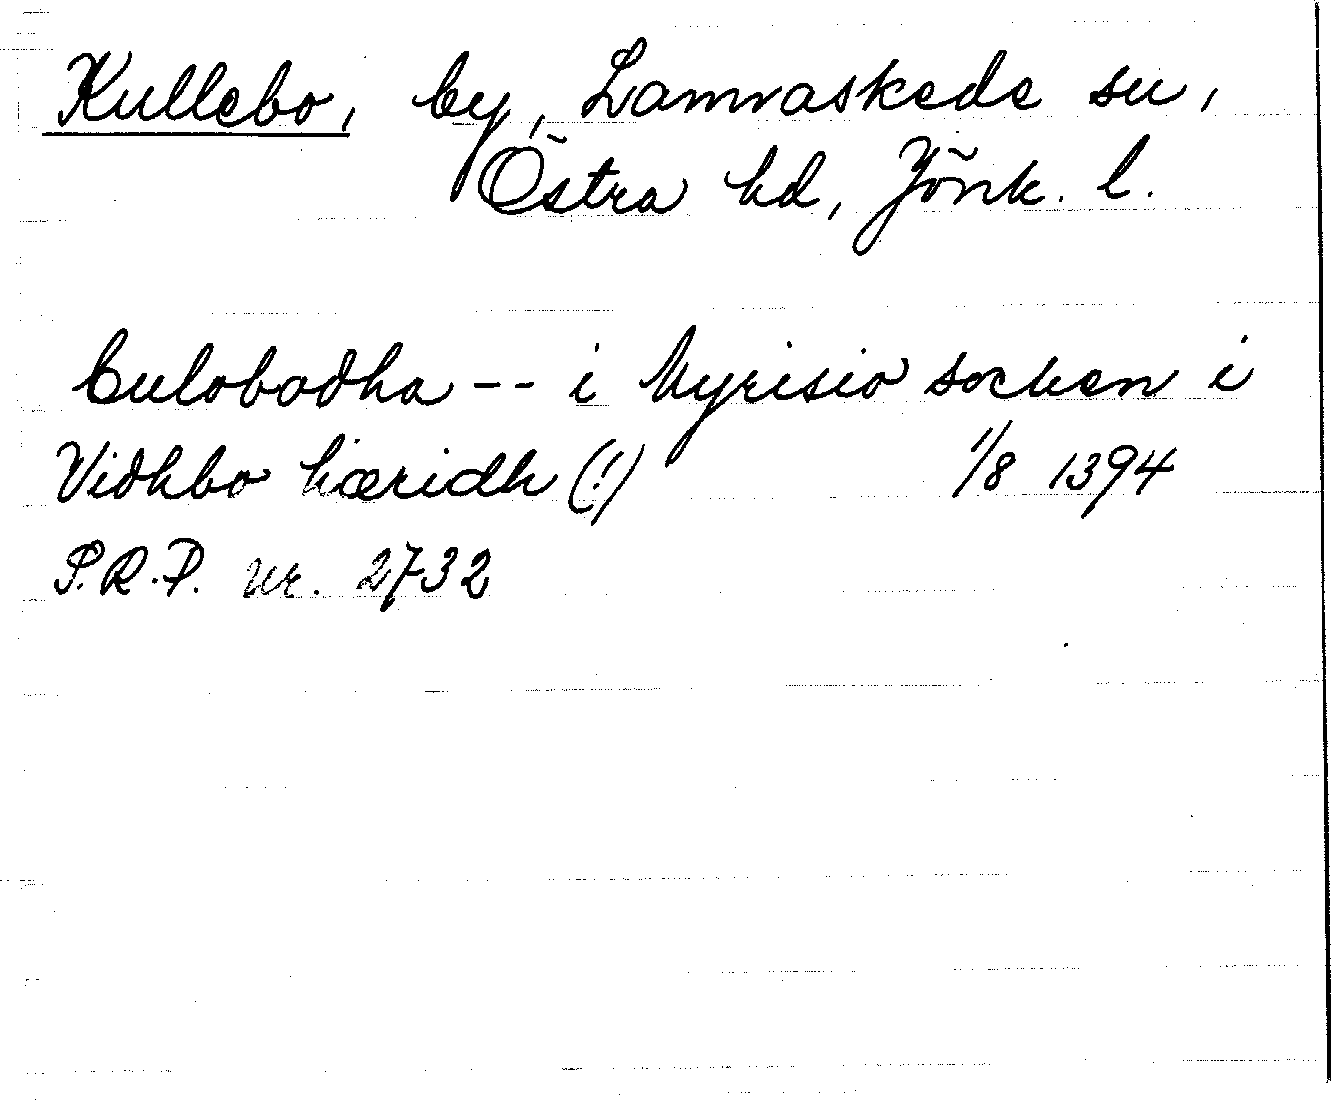 Kullebo, by, Lannaskede sn,
Östra hd, Jönk. l.
Culobodha -- i Myrisio socken i
Vidhbo hæridh (!) 1/8 1394
S.R.P. nr. 2732